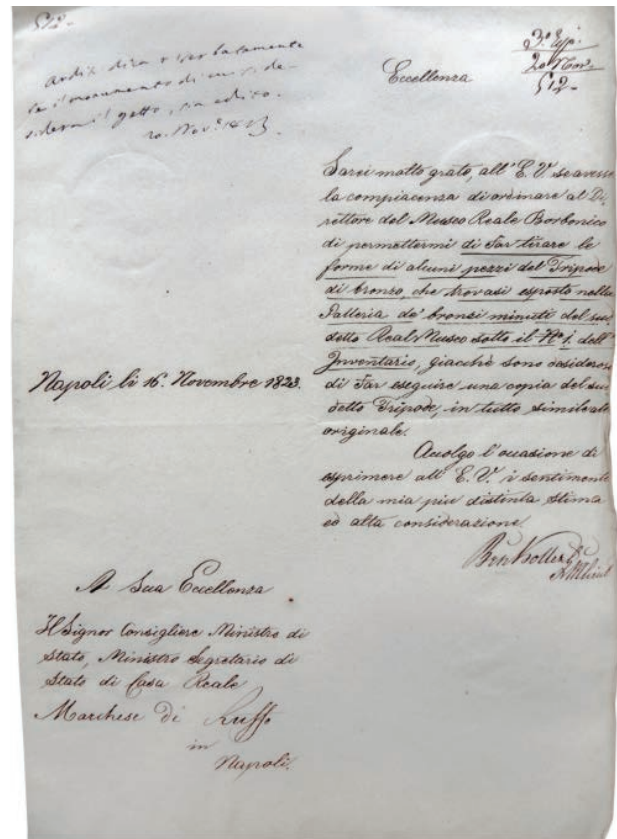 512-
Ardix dira verbalmente
se il monumento di cui si de-
sidera il getto, sia edito.
20. Nov.e 1823
3.o
20 Nov.
512-
Eccellenza
Sarei molto grato, all' E. V. se avesse
la compiacenza di ordinare al Di-
rettore del Museo Reale Borbonico
di permettermi di far tirare le
forme di alcuni pezzi del Tripode
di bronzo, che trovasi esposto nella
Galleria de' bronzi minuti del sud
detto Real Museo sotto il N.o 1. dell'
Inventario, giacchè sono desideroso
di far eseguire una copia del sud
detto Tripode, in tutto simile all'
originale.
Accolgo l'occasione di
esprimere all' E. V. i sentimenti
della mia più distinta stima
ed alta considerazione.
Napoli li 16. Novembre 1823.
A Sua Eccellenza
Il Signor Consigliere Ministro di
Stato, Ministro Segretario di
Stato di Casa Reale
Marchese Di Ruffo
in
Napoli.